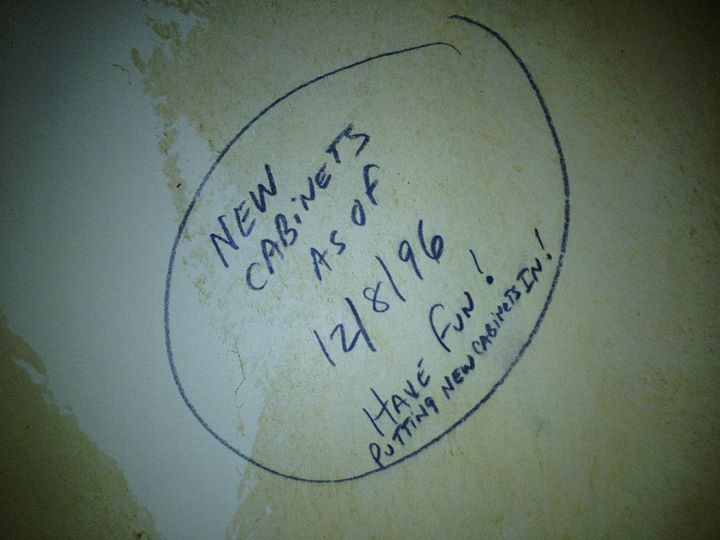 NEW
CABiNETS
AS OF
12/8/96
HAVE FUN!
PUTTING NEW CABiNETS IN!